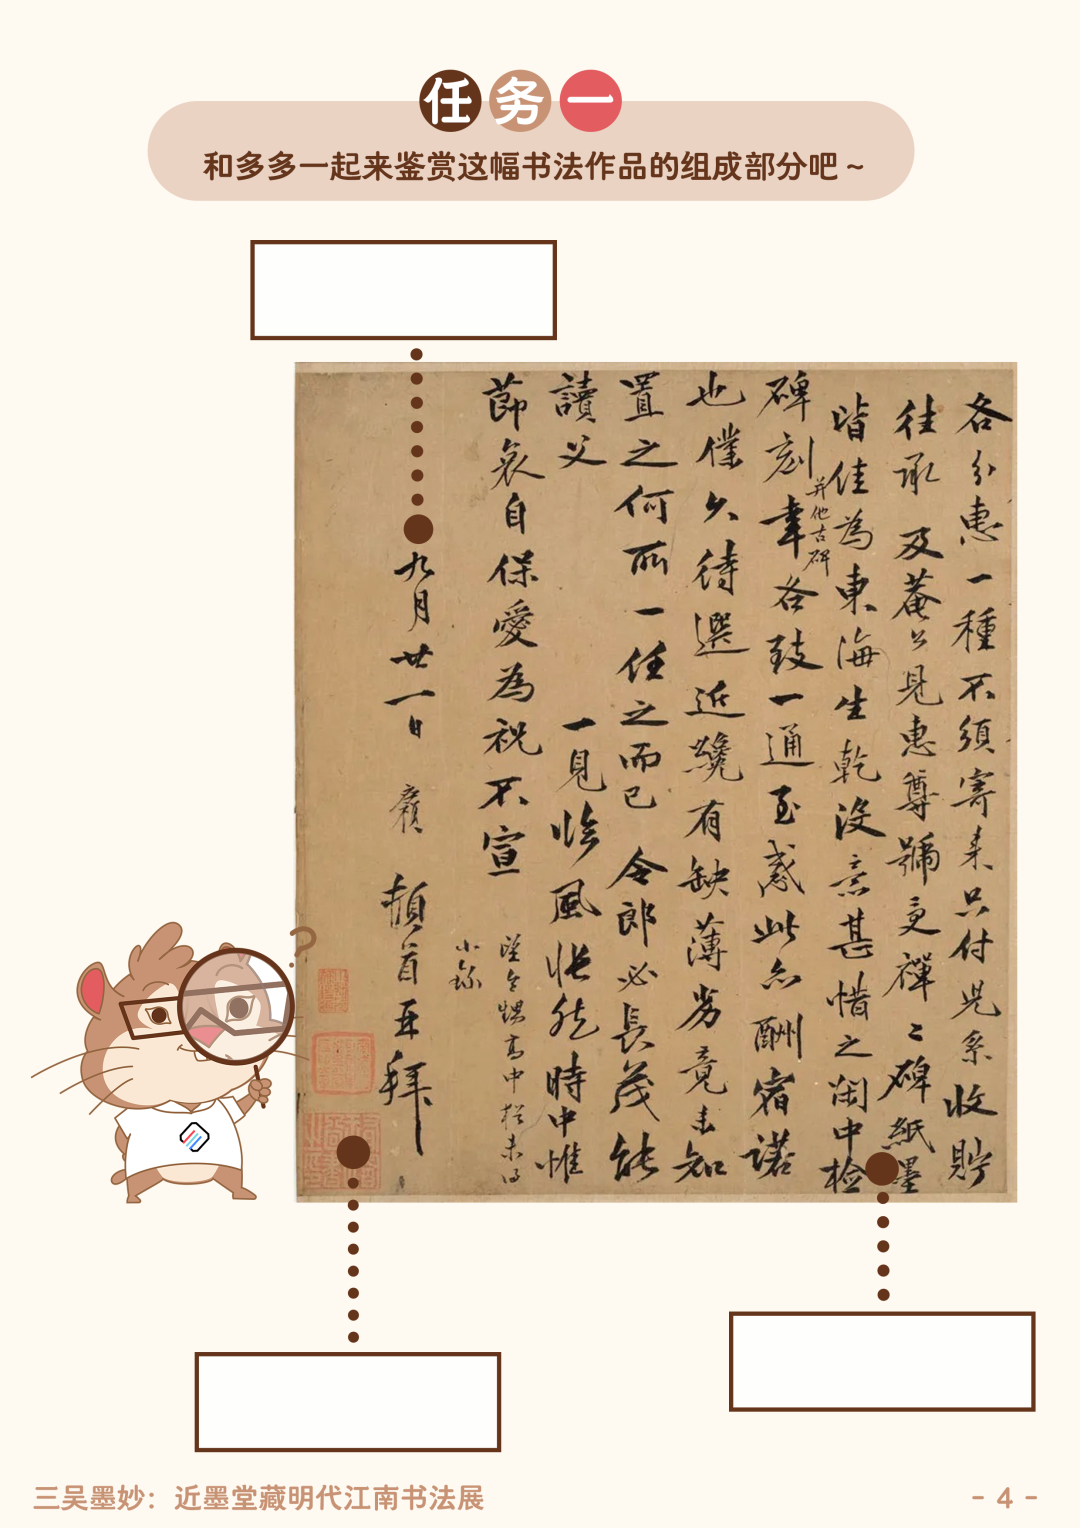 任务一
和多多一起来鉴赏这幅书法作品的组成部分吧～
各分惠一種不須寄来只付兒系收貯
往承及菴公見惠尊號更禪二碑紙墨
皆佳為東海生乾沒意甚惜之閑中检
并他古碑
碑刻幸各致一通至感此亦酬宿諾
也僕久待選近纔有缺薄劣竟未知
置之何所一任之而已令郎必長茂能
讀父
一見臨風悵然時中惟
節哀自保愛為祝不宣
小録
九月廿一日
頓首再拜
三吴墨妙：近墨堂藏明代江南书法展
- 4 -